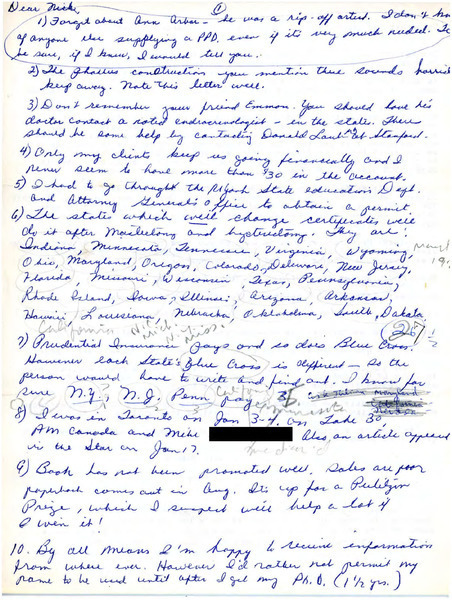 Dear Nick, ①
1) Forget about Ann Arbor - he was a rip-off artist. I don't know
of anyone else supplying a PPD, even if it's very much needed. To
be sure, if I knew, I would tell you.
2) The phallus construction you mention thus sounds horrid
keep away. Note this letter well.
3) Don't remember your friend Emmon. You should have his
doctor contact a noted endocrenologist - in the state. There
should be some help by contacting Donald Laub MD at Stanford.
4) Only my clients keep us going financially and I
never seem to have more than $30 in the account.
5) I had to go throught the NYork State education Dept.
and Attorney General's Office to obtain a permit.
6) The states which will change certificates will
do it after Mastectomy and hystectomy. They are:
Indiana, Minnecota, Tennessee, Virginia, Wyoming,
Ohio, Maryland, Oregon, Colorado, Delaware, New Jersey,
Florida, Missouri, Wisconsin, Texas, Pennsylvania,
Rhode Island, Iowa, Illinois, Arizona, Arkansas,
Hawaii, Louisiana, Nebracka, Oklahoma, South Dakota.
California N.Y. Mich. Miss.
26 1/2
7) Prudential Insurance pays and so does Blue Cross.
However each State's Blue Cross is different - so the
person would have to write and find out. I know for
sure N.Y., N.J, Penn pays
8) I was in Toronto on Jan 3-4, on Take 30
AM Canada and Mike Also, an article appeared
in the Star on Jan 17.
9) Book has not been promoted well. Sales are poor
paperback comes out in Aug. It's up for a Pulitzin
Prize, which I suspect will help a lot if
I win it!
10. By all means I'm happy to receive information
from where ever. However I'd rather not permit my
name to be used until after I get my Ph.D. (1 1/2 yrs.)